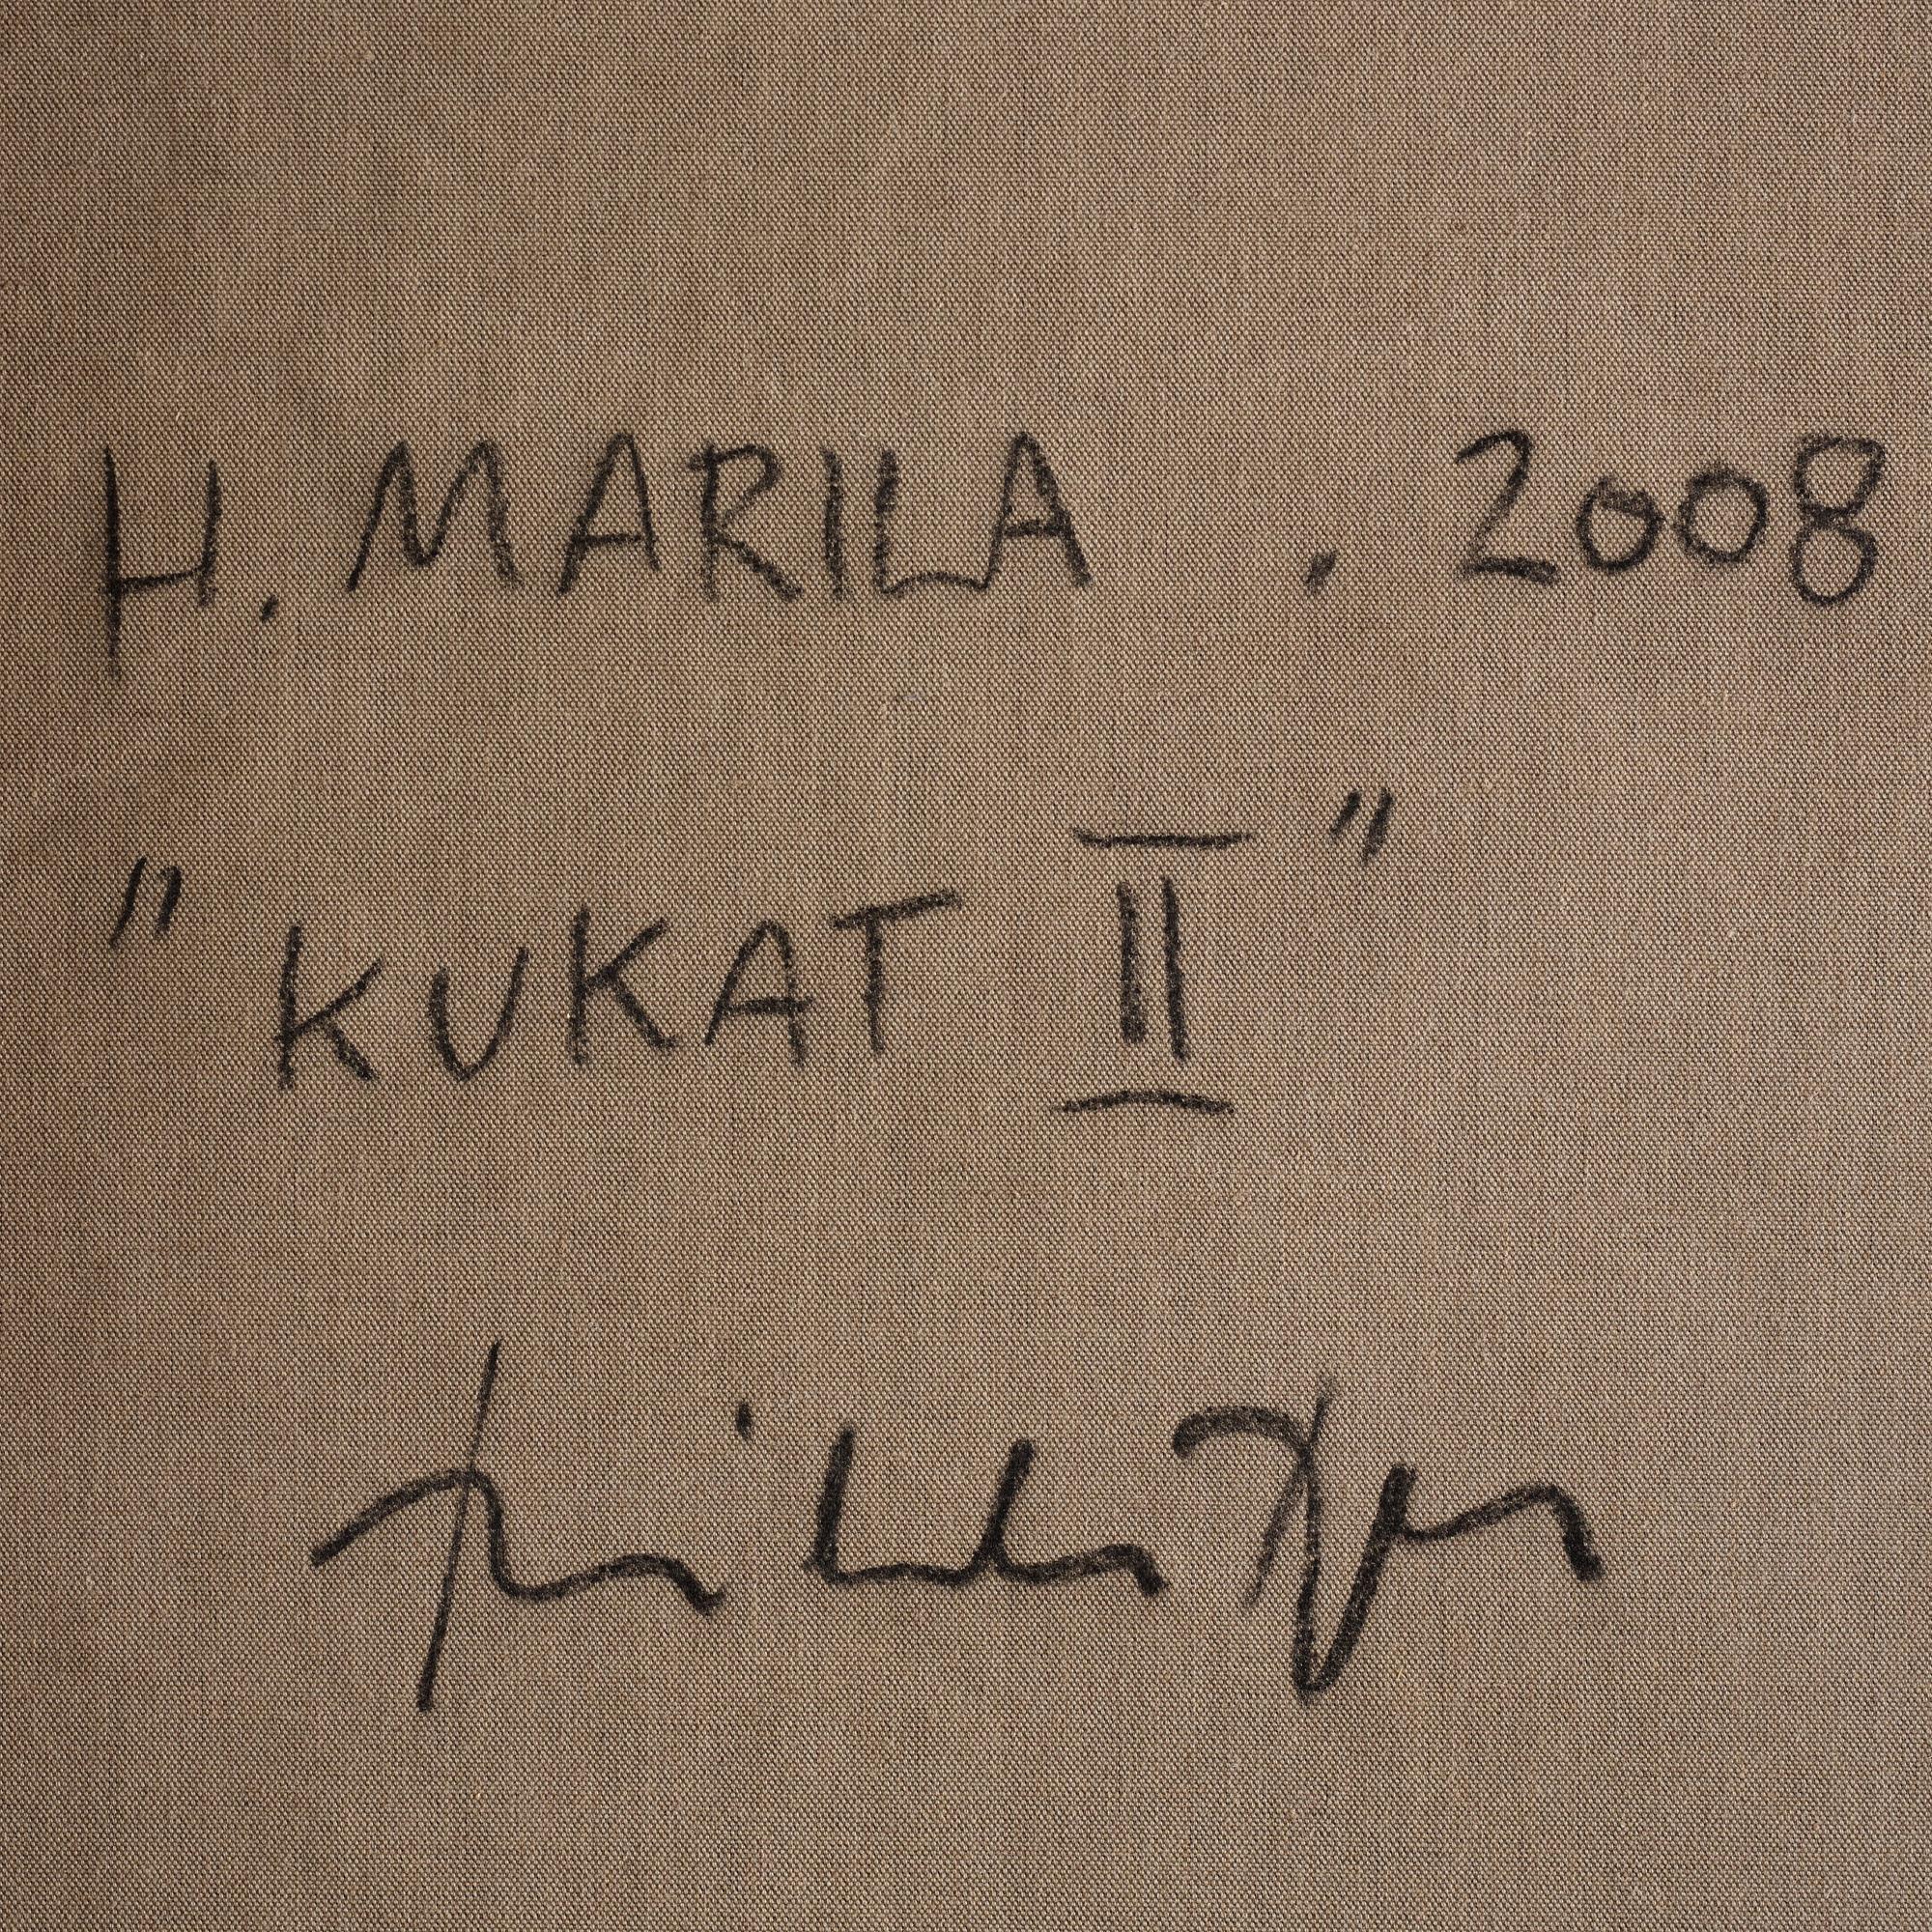 H. MARILA . 2008
"KUKAT II"